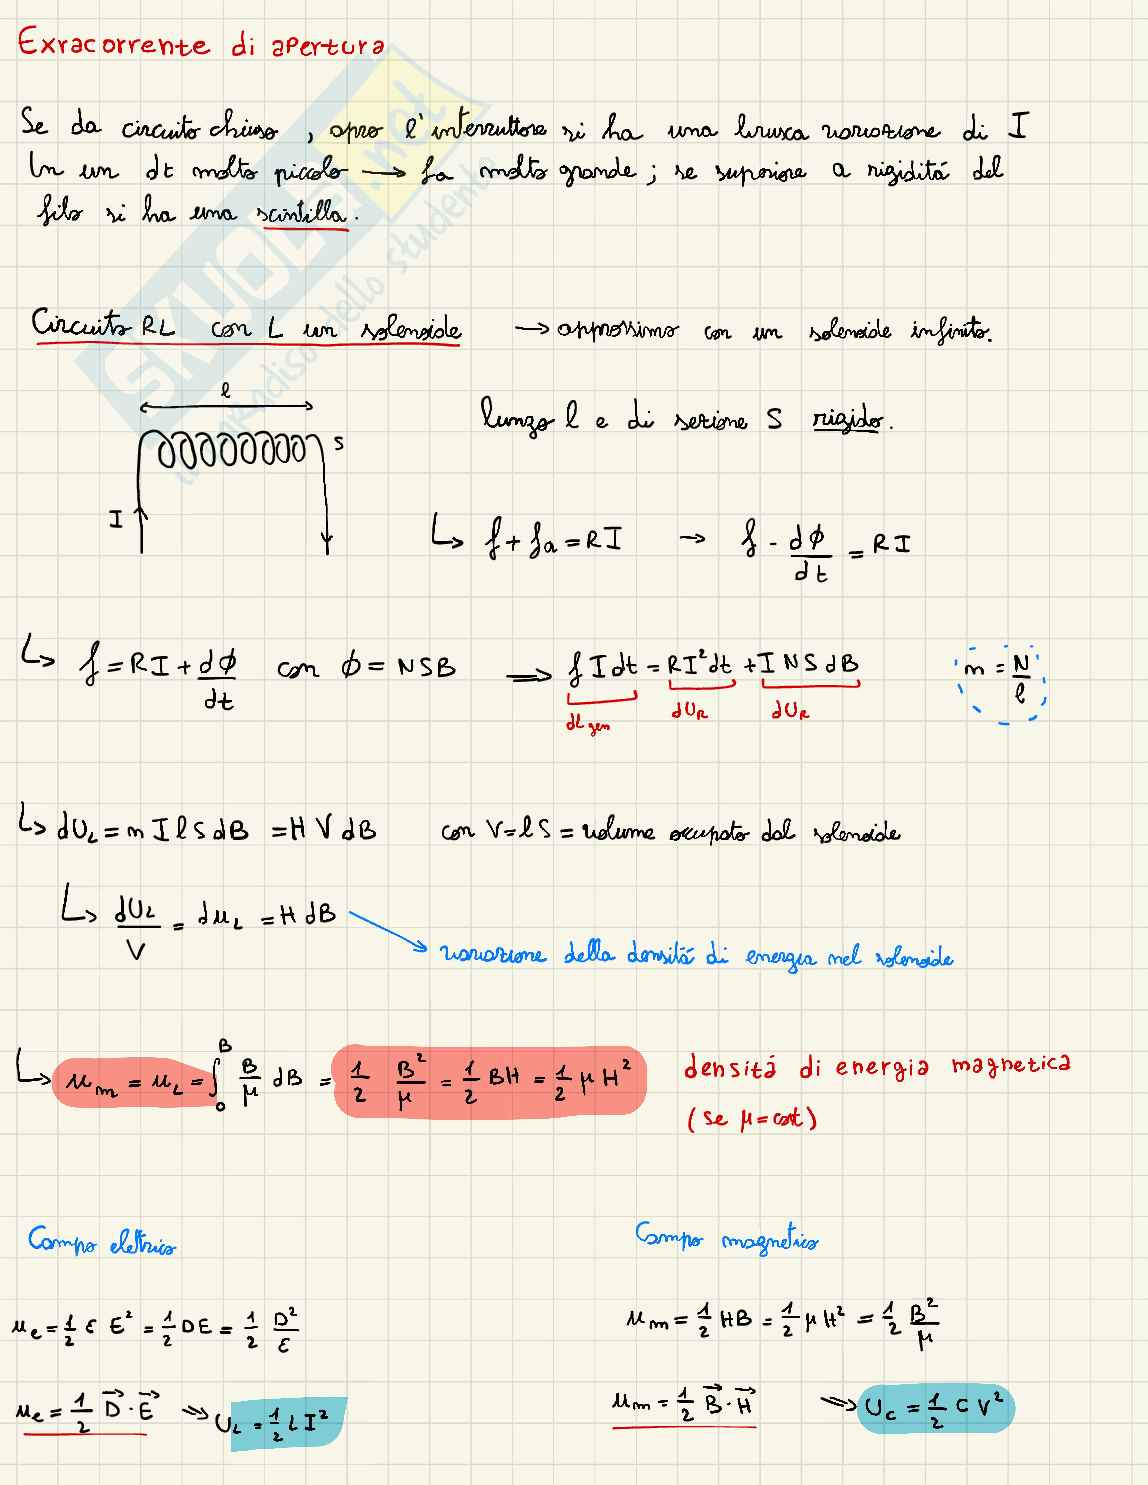 Exracorrente di apertura
Se da circuito chiuso, apro l'interruttore si ha una brusca variazione di I
In un dt molto piccolo → fa molto grande; se superiore a rigiditá del
filo si ha una scintilla.
Circuito RL con L un solenoide → approssimo con un solenoide infinito.
l
lungo l e di sezione S rigido.
S
I
↳ f + fa = RI → f - dϕ/dt = RI
↳ f = RI + dϕ/dt con ϕ = NSB ⟹ f I dt = RI² dt + I N S dB m = N/l
dL gen dU_R dU_R
↳ dU_L = m I l S dB = H V dB con V = l S = volume occupato dal solenoide
↳ dU_L/V = dμ_L = H dB
variazione della densitá di energia nel solenoide
↳ μ_m = μ_L = ∫₀ᴮ B/μ dB = 1/2 B²/μ = 1/2 BH = 1/2 μ H² densitá di energia magnetica
(se μ = cost)
Campo elettrico Campo magnetico
μ_e = 1/2 ε E² = 1/2 DE = 1/2 D²/ε μ_m = 1/2 HB = 1/2 μ H² = 1/2 B²/μ
μ_e = 1/2 D⃗ · E⃗ ⟹ U_L = 1/2 L I² μ_m = 1/2 B⃗ · H⃗ ⟹ U_C = 1/2 C V²
SKUOLA.net
il paradiso dello studente